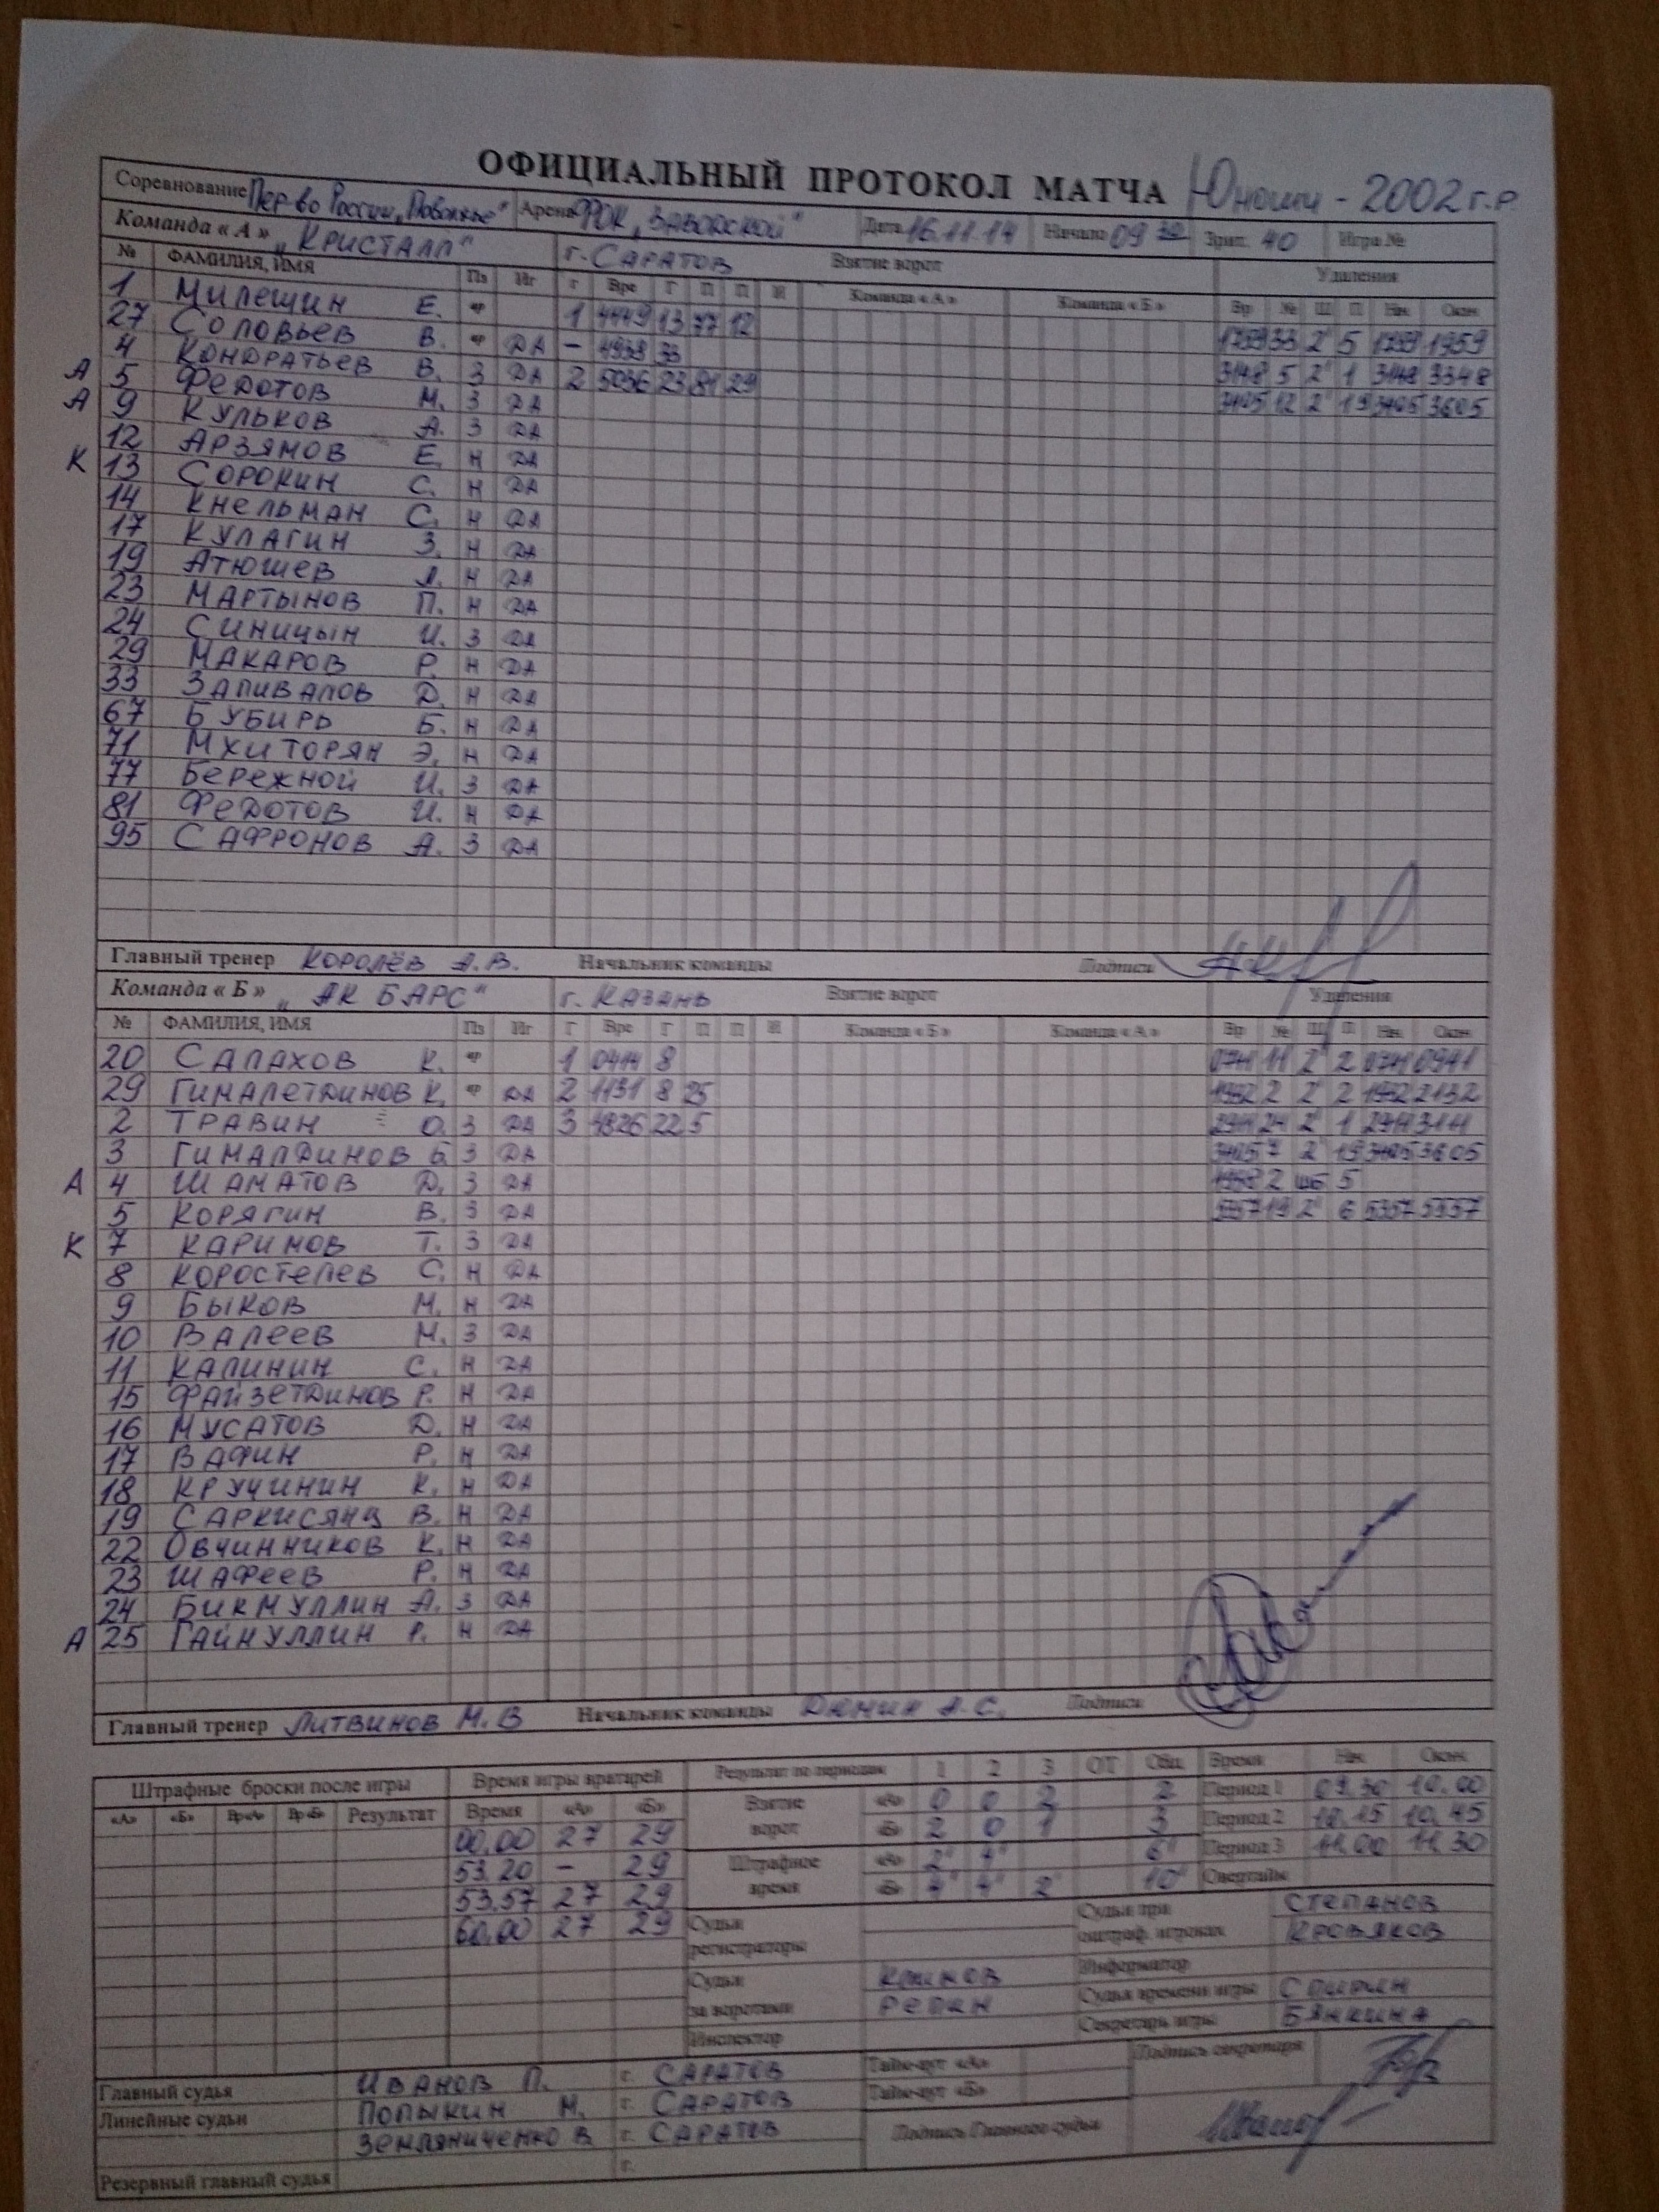 ОФИЦИАЛЬНЫЙ ПРОТОКОЛ МАТЧА Юноши - 2002 г.р.
Соревнование Пер-во России „Поволжье" Арена ФОК „Заводской" Дата 16.11.14 Начало 09 30 Зрит. 40 Игра №
Команда « А » „Кристалл" г. Саратов Взятие ворот Удаления
№ ФАМИЛИЯ, ИМЯ Пз Иг Г Вре Г П П И Команда «А» Команда «Б» Вр № Ш П Нач Окон
1 Милешин Е. вр 1 4449 13 77 12 1759 33 2' 5 1759 1959
27 Соловьев В. вр ДА – 4938 33 3148 5 2' 1 3148 3348
4 Кондратьев В. З ДА 2 5036 23 81 29 3405 12 2' 19 3405 3605
А 5 Федотов М. З ДА
А 9 Кульков А. З ДА
12 Арзямов Е. Н ДА
К 13 Сорокин С. Н ДА
14 Кнельман С. Н ДА
17 Кулагин З. Н ДА
19 Атюшев Л. Н ДА
23 Мартынов П. Н ДА
24 Синицын И. З ДА
29 Макаров Р. Н ДА
33 Запивалов Д. Н ДА
67 Бубирь Б. Н ДА
71 Мхиторян Э. Н ДА
77 Бережной И. З ДА
81 Федотов И. Н ДА
95 Сафронов А. З ДА
Главный тренер Королёв А.В. Начальник команды Подпись
Команда « Б » „Ак Барс" г. Казань Взятие ворот Удаления
№ ФАМИЛИЯ, ИМЯ Пз Иг Г Вре Г П П И Команда «Б» Команда «А» Вр № Ш П Нач Окон
20 Салахов К. вр 1 0414 8 0741 11 2' 2 0741 0941
29 Гималетдинов К. вр ДА 2 1131 8 25 1932 2 2' 2 1932 2132
2 Травин О. З ДА 3 4826 22 5 2911 24 2' 1 2911 3111
3 Гималдинов Б. З ДА 3405 7 2' 19 3405 3605
А 4 Шаматов Д. З ДА 2 шб 5
5 Корягин В. З ДА 5357 19 2' 6 5357 5557
К 7 Каримов Т. З ДА
8 Коростелев С. Н ДА
9 Быков М. Н ДА
10 Валеев М. З ДА
11 Калинин С. Н ДА
15 Файзетдинов Р. Н ДА
16 Мусатов Д. Н ДА
17 Вафин Р. Н ДА
18 Кручинин К. Н ДА
19 Саркисянц В. Н ДА
22 Овчинников К. Н ДА
23 Шафеев Р. Н ДА
24 Бикмуллин А. З ДА
А 25 Гайнуллин Р. Н ДА
Главный тренер Литвинов М.В Начальник команды Демин А.С. Подпись
Штрафные броски после игры Время игры вратарей Результат по периодам 1 2 3 ОТ Общ Время Нач Окон
«А» «Б» Вр«А» Вр«Б» Результат Время «А» «Б» Взятие ворот «А» 0 0 2 2 Период 1 09.30 10.00
00.00 27 29 «Б» 2 0 1 3 Период 2 10.15 10.45
53.20 – 29 Штрафное время «А» 2' 4' 6' Период 3 11.00 11.30
53.57 27 29 «Б» 4' 4' 2' 10' Овертайм
60.00 27 29 Судьи регистраторы Судьи при оштраф. игроках Степанов
Кровяков
Судьи за воротами Климов Информатор
Репин Судья времени игры Спирин
Инспектор Секретарь игры Бянкина
Главный судья Иванов П. г. Саратов Тайм-аут «А» Подпись секретаря
Линейные судьи Попыкин М. г. Саратов Тайм-аут «Б»
Земляниченко В г. Саратов Подпись Главного судьи
Резервный главный судья г.